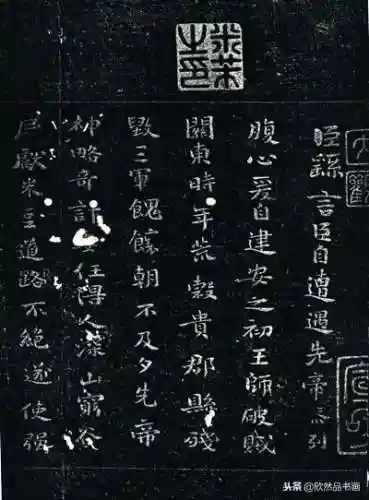 米芾之印
臣繇言臣自遭遇先帝忝列
腹心爰自建安之初王師破賊
關東時年荒穀貴郡縣殘
毀三軍餽饟朝不及夕先帝
神略奇計任得人深山窮谷
民獻米豆道路不絕遂使强
头条 @欣然品书画